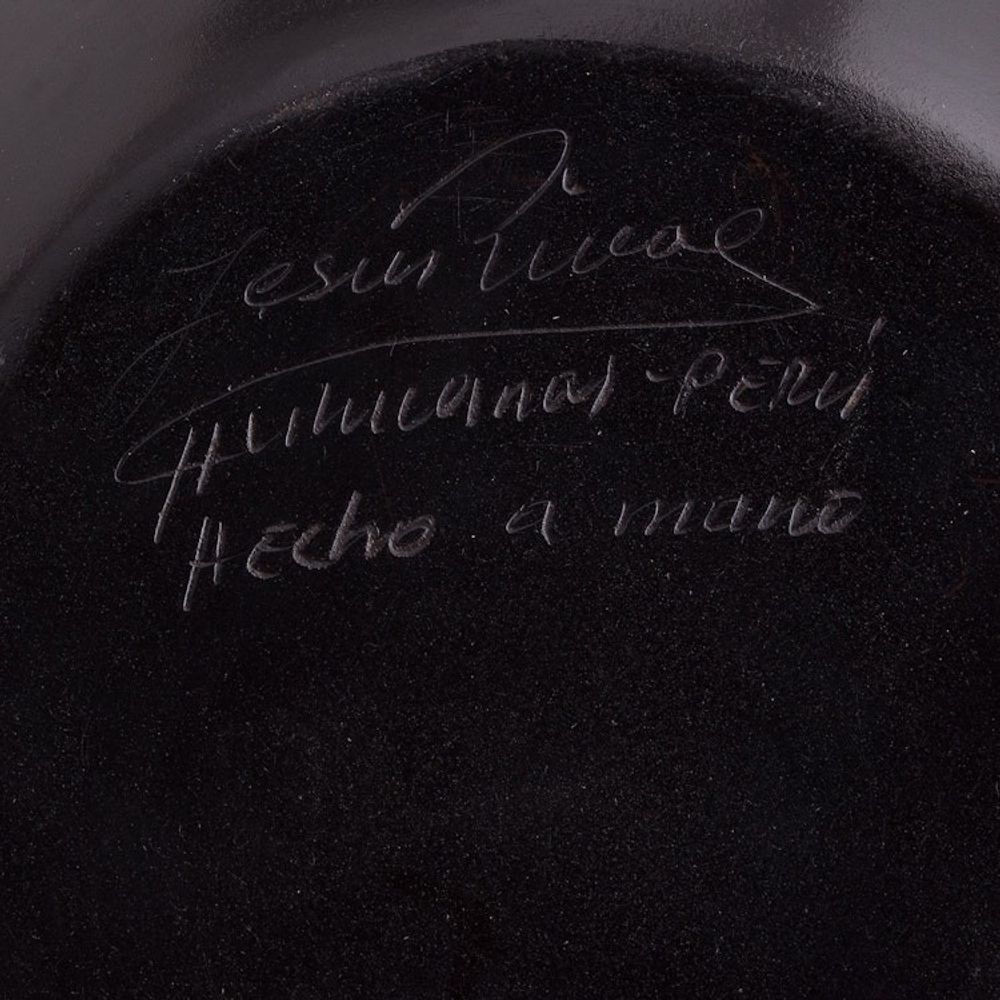 Jesús
Chulucanas - PERÚ
HEcho a mano